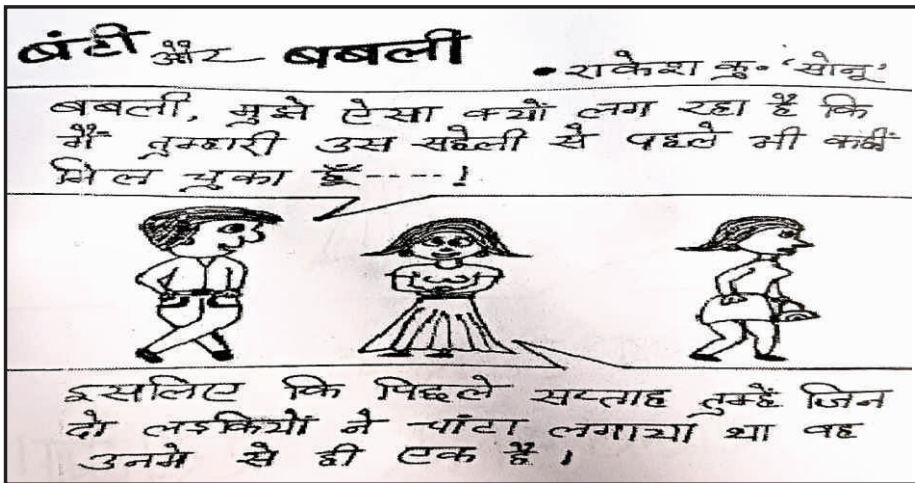 बंटी और बबली
• राकेश कु. 'सोनू'
बबली, मुझे ऐसा क्यों लग रहा है कि
मैं तुम्हारी उस सहेली से पहले भी कहीं
मिल चुका हूँ----!
इसलिए कि पिछले सप्ताह तुम्हें जिन
दो लड़कियों ने चांटा लगाया था वह
उनमे से ही एक है।